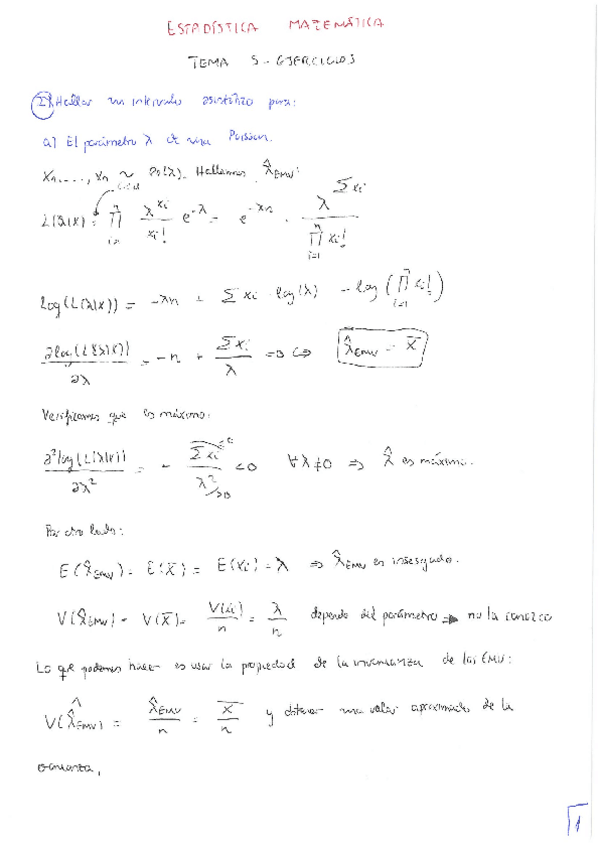 ESTADÍSTICA MATEMÁTICA
TEMA 5 - EJERCICIOS
2) Hallar un intervalo asintótico para:
a) El parámetro λ de una Poisson.
X1, ..., Xn ~ Ps(λ). Hallamos λ̂EMV:
L(λ|X) = ∏ i=1 n λ^xi / xi! e^-λ = e^-λn · λ^Σxi / ∏ i=1 n xi!
log(L(λ|X)) = -λn + Σxi · log(λ) - log(∏ i=1 n xi!)
∂log(L(λ|X)) / ∂λ = -n + Σxi / λ = 0 ⇔ λ̂EMV = X̄
Verificamos que es máximo:
∂²log(L(λ|X)) / ∂λ² = - Σxi / λ² < 0 ∀λ≠0 ⇒ λ̂ es máximo.
Por otro lado:
E(λ̂EMV) = E(X̄) = E(Xi) = λ ⇒ λ̂EMV es insesgado.
V(λ̂EMV) = V(X̄) = V(Xi) / n = λ / n depende del parámetro ⇒ no la conozco
Lo que podemos hacer es usar la propiedad de la invarianza de los EMV:
V̂(λ̂EMV) = λ̂EMV / n = X̄ / n y obtener una valor aproximado de la
varianza.
1